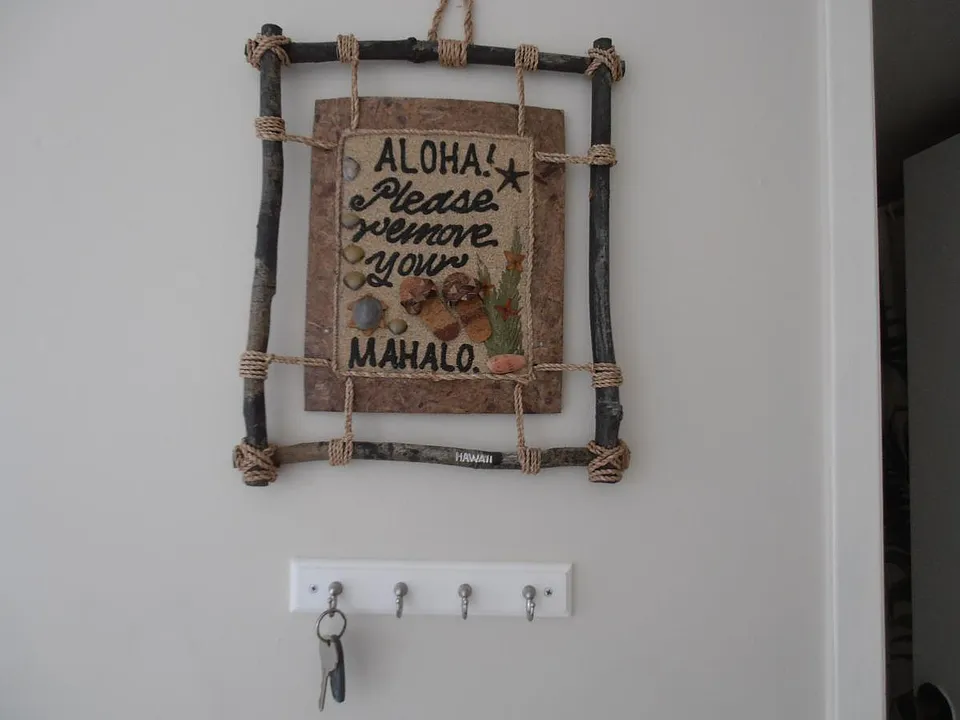 ALOHA!
Please
remove
your
MAHALO.
HAWAII